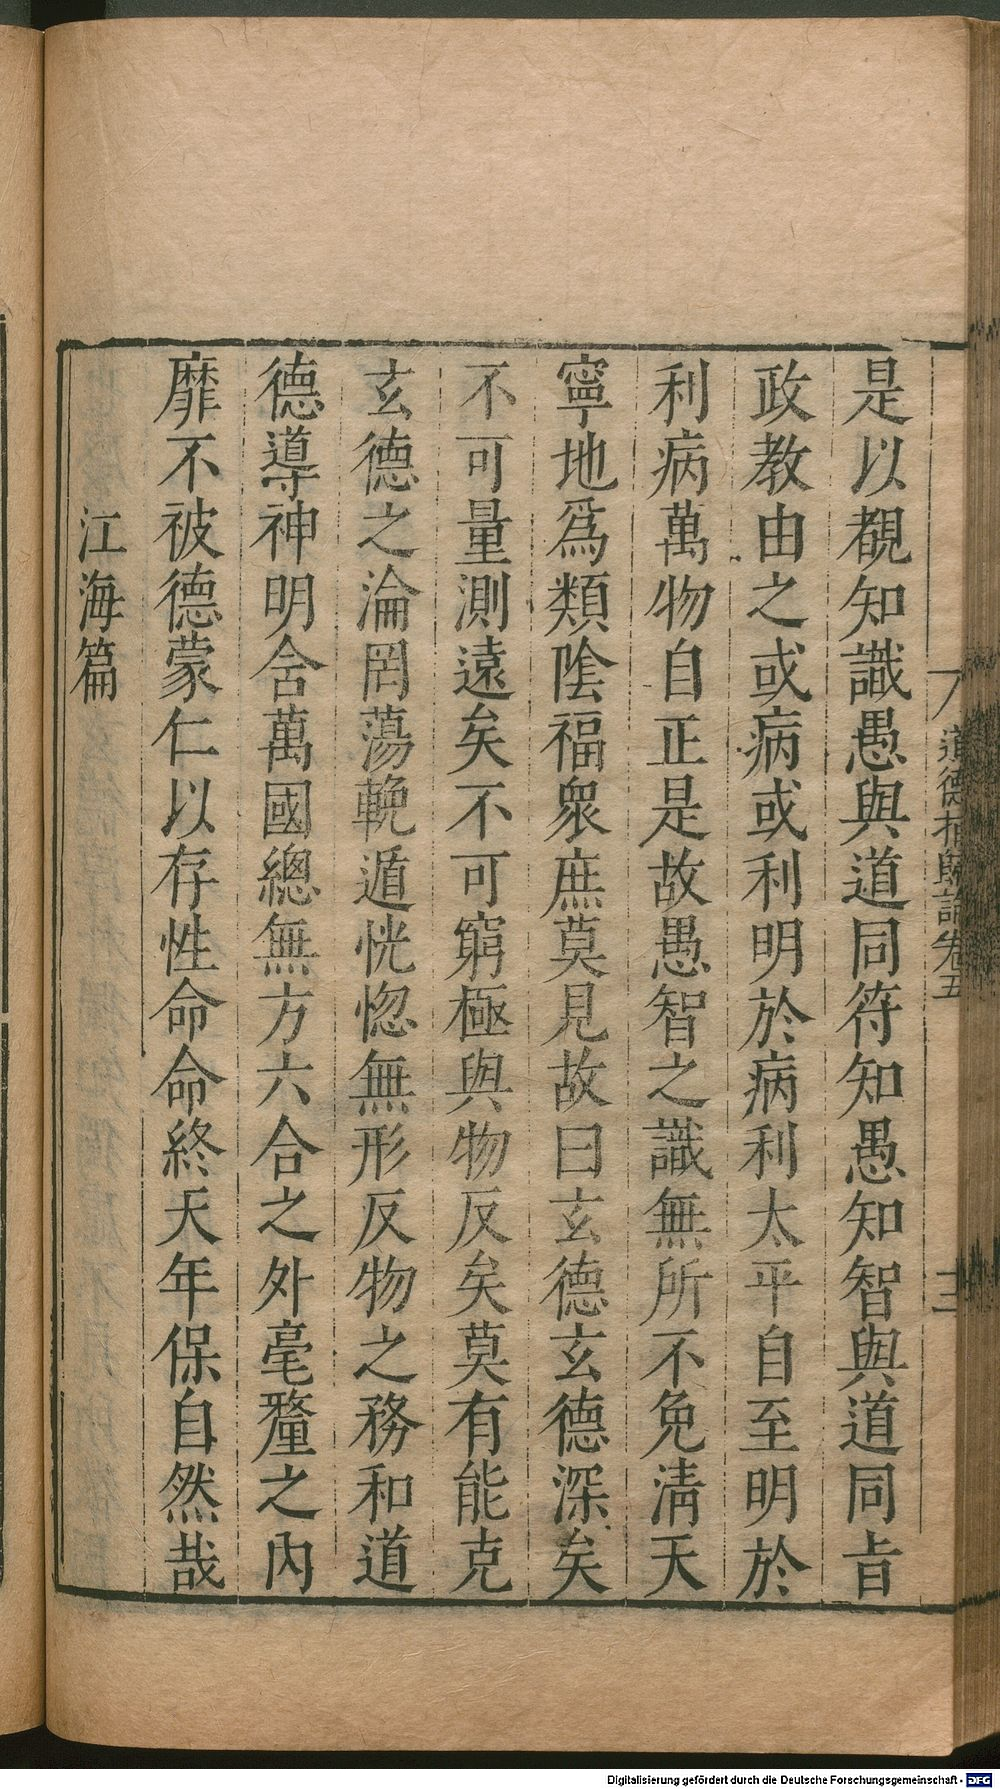 是以覩知識愚與道同符知愚知智與道同㫖
政教由之或病或利明於病利太平自至明於
利病萬物自正是故愚智之識無所不免淸天
寧地爲類陰福衆庶莫見故曰玄德玄德深矣
不可量測遠矣不可窮極與物反矣莫有能克
玄德之淪罔蕩輓遁恍惚無形反物之務和道
德導神明含萬國總無方六合之外毫釐之內
靡不被德蒙仁以存性命命終天年保自然哉
江海篇
道德指歸論卷五
Digitalisierung gefördert durch die Deutsche Forschungsgemeinschaft - DFG